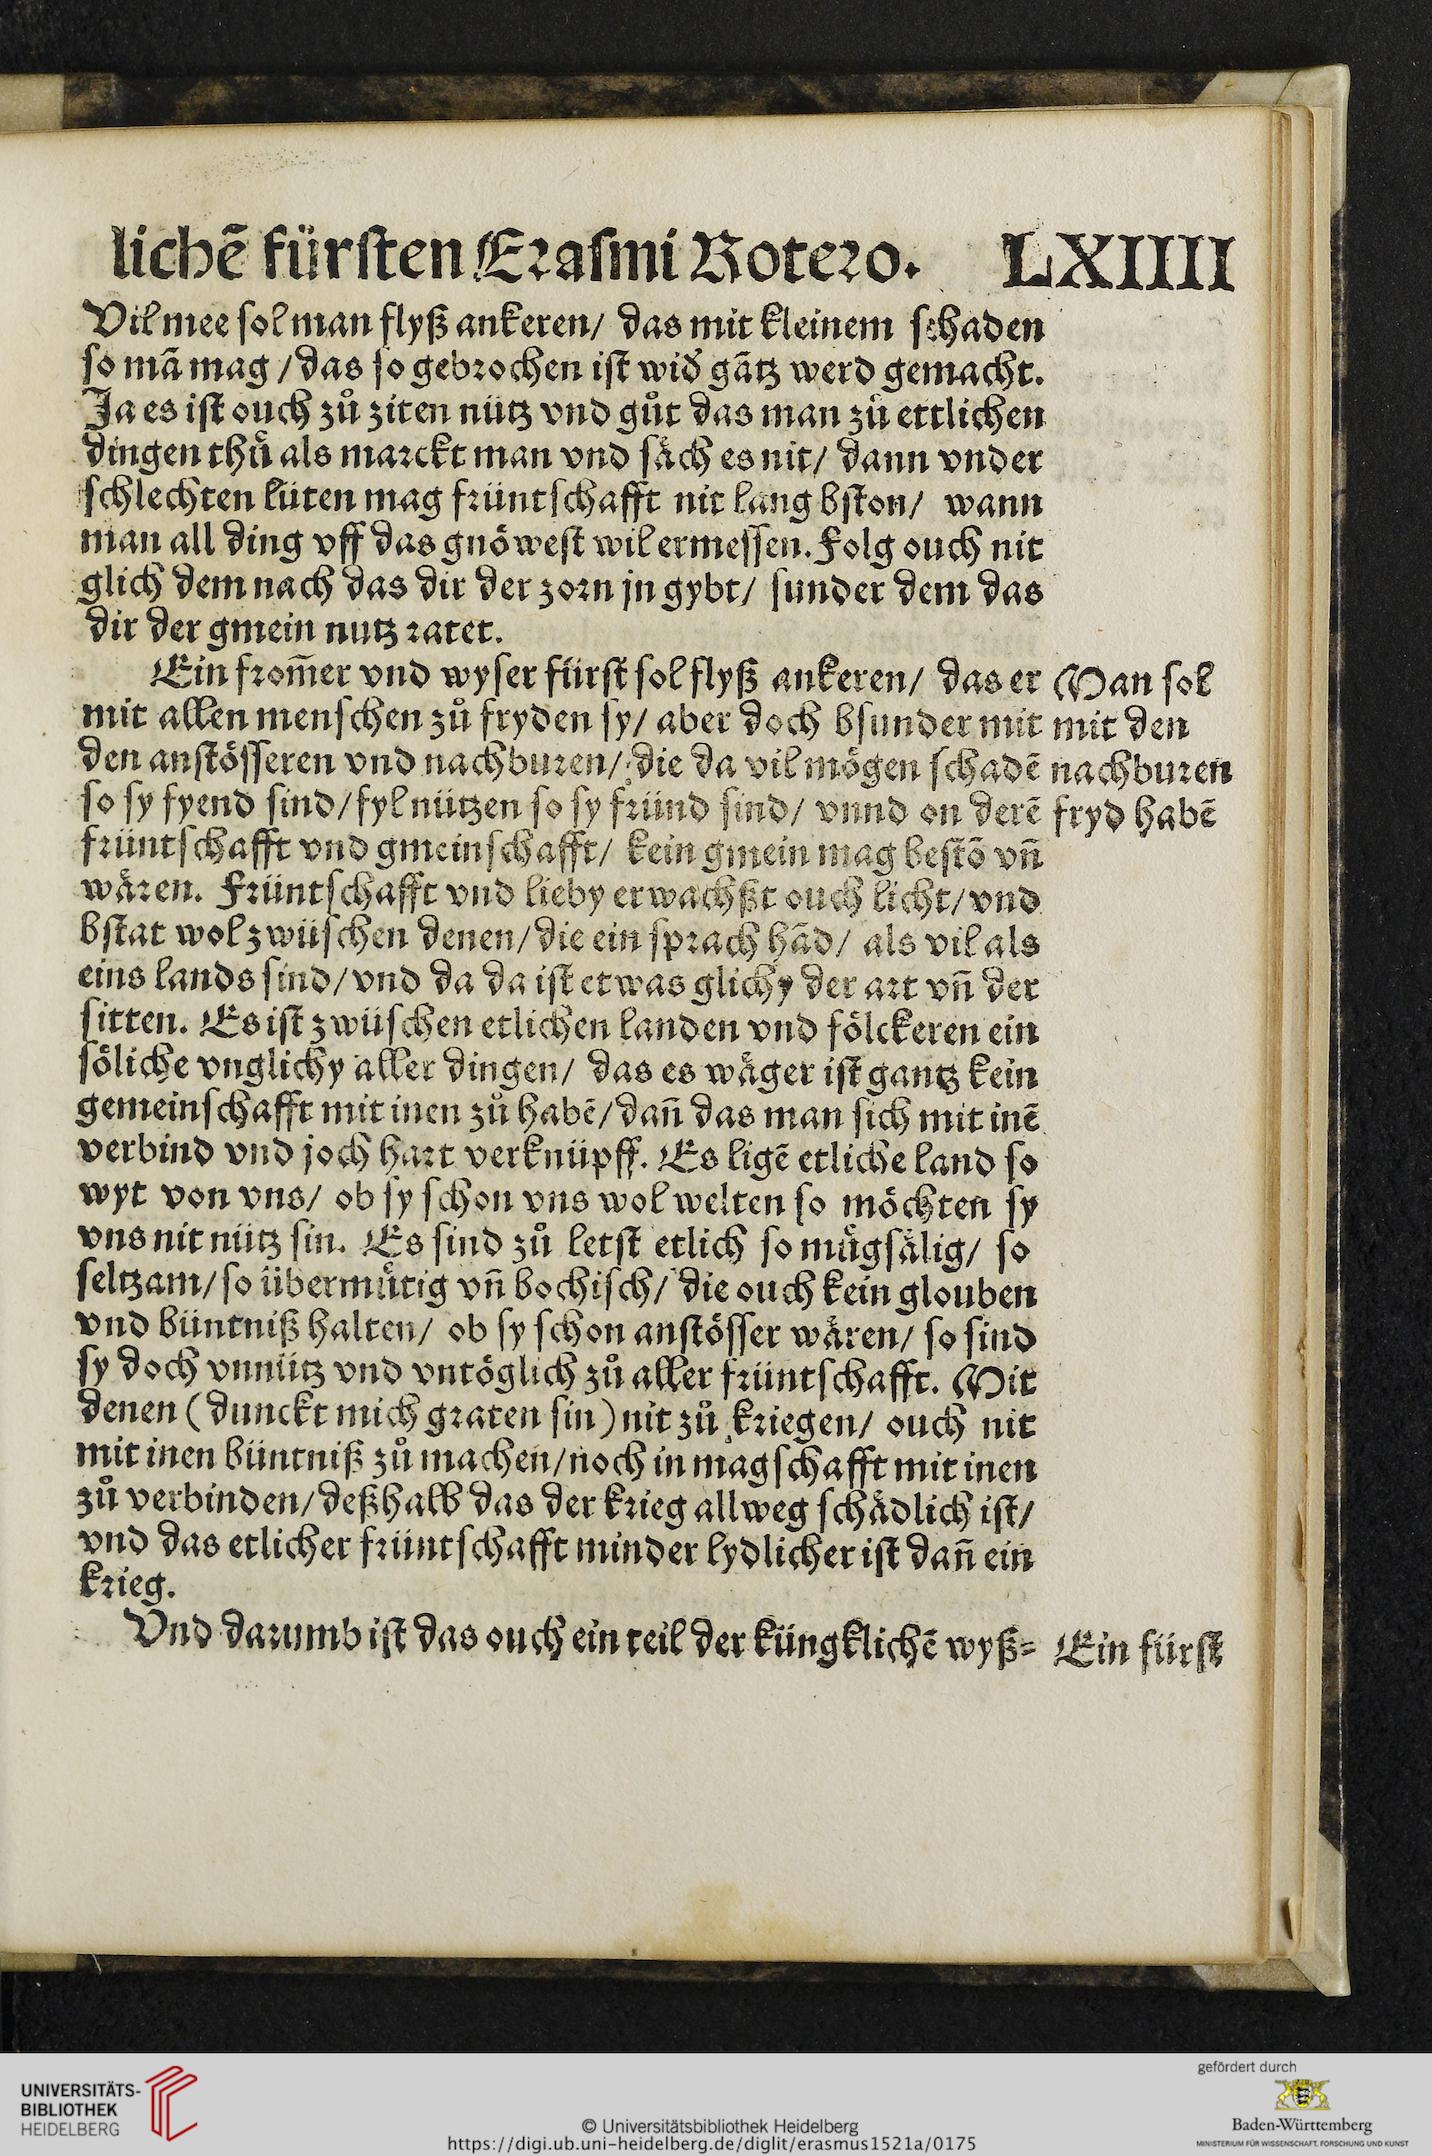 lichē fürsten Erasmi Rotero. LXIIII
Vil mee sol man flyß ankeren/ das mit kleinem schaden
so mā mag / das so gebrochen ist wid' gātz werd gemacht.
Ja es ist ouch zů ziten nütz vnd gůt das man zů ettlichen
dingen thů als marckt man vnd säch es nit/ dann vnder
schlechten lüten mag früntschafft nit lang bston/ wann
man all ding vff das gnöwest wil ermessen. Folg ouch nit
glich dem nach das dir der zorn jn gybt/ sunder dem das
dir der gmein nutz ratet.
Ein from̄er vnd wyser fürst sol flyß ankeren/ das er
mit allen menschen zů fryden sy/ aber doch bsunder mit
den anstösseren vnd nachburen/ die da vil mögen schadē
so sy fyend sind/ fyl nützen so sy fründ sind/ vnnd on derē
früntschafft vnd gmeinschafft/ kein gmein mag bestō vn̄
wären. Früntschafft vnd lieby erwachßt ouch licht/ vnd
bstat wol zwüschen denen/ die ein sprach hād/ als vil als
eins lands sind/ vnd da da ist etwas glichy der art vn̄ der
sitten. Es ist zwüschen etlichen landen vnd fölckeren ein
söliche vnglichy aller dingen/ das es wäger ist gantz kein
gemeinschafft mit inen zů habē/ dan̄ das man sich mit inē
verbind vnd joch hart verknüpff. Es ligē etliche land so
wyt von vns/ ob sy schon vns wol welten so möchten sy
vns nit nütz sin. Es sind zů letst etlich so mügsälig/ so
seltzam/ so übermütig vn̄ bochisch/ die ouch kein glouben
vnd büntniß halten/ ob sy schon anstösser wären/ so sind
sy doch vnnütz vnd vntöglich zů aller früntschafft. Mit
denen (dunckt mich graten sin) nit zů kriegen/ ouch nit
mit inen büntniß zů machen/ noch in magschafft mit inen
zů verbinden/ deßhalb das der krieg allweg schädlich ist/
vnd das etlicher früntschafft minder lydlicher ist dan̄ ein
krieg.
Vnd darumb ist das ouch ein teil der küngklichē wyß=
Man sol
mit den
nachburen
fryd habē
Ein fürst
UNIVERSITÄTS-
BIBLIOTHEK
HEIDELBERG
© Universitätsbibliothek Heidelberg
https://digi.ub.uni-heidelberg.de/diglit/erasmus1521a/0175
gefördert durch
Baden-Württemberg
MINISTERIUM FÜR WISSENSCHAFT, FORSCHUNG UND KUNST